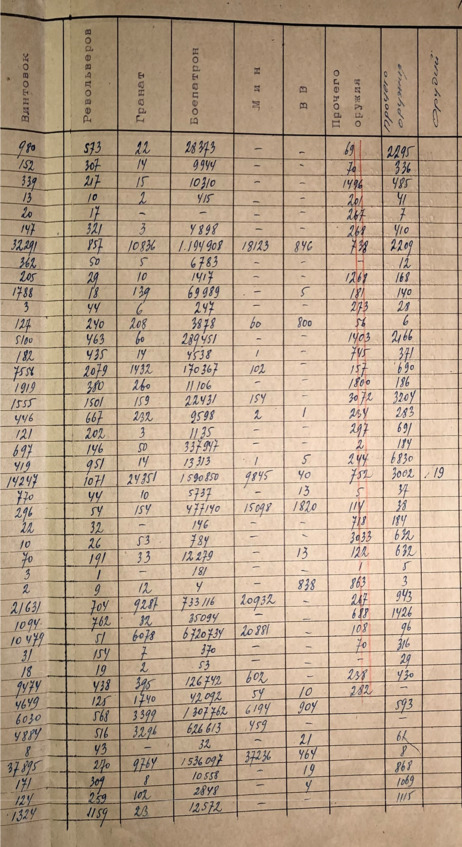 Винтовок Револьверов Гранат Боепатрон Мин ВВ Прочего оружия
980 573 22 28373 - - 69 2295
152 307 14 9944 - - 70 336
339 217 15 10310 - - 1496 485
13 10 2 415 - - 201 41
20 17 - - - - 267 7
147 321 3 4898 - - 268 410
32291 857 10836 1.194908 18123 846 738 2209
362 50 5 6783 - - - 12
205 29 10 1417 - - 1268 168
1788 18 139 69989 - 5 181 140
3 44 6 247 - - 273 28
127 240 208 3878 60 800 56 6
5100 463 60 289451 - - 1403 2166
182 435 14 4538 1 - 745 371
7556 2079 1432 170367 102 - 157 690
1919 380 260 11106 - - 1800 186
1555 1501 159 22431 154 - 3072 3204
446 667 232 9598 2 1 234 283
121 202 3 1175 - - 297 691
697 146 50 337947 - - 2 184
419 951 14 13313 1 5 244 6830
14247 1071 24351 1590850 9845 40 752 3002 19
770 44 10 5737 - 13 5 37
296 54 154 477140 15098 1820 114 38
22 32 - 146 - - 718 184
10 26 53 784 - - 3033 632
70 191 33 12279 - 13 122 632
3 1 - 181 - - 1 5
2 9 12 4 - 838 863 3
21631 704 9287 733116 20932 - 267 943
1094 762 32 35094 - - 688 1426
10479 51 6078 6720734 20881 - 108 96
31 154 7 370 - - 70 316
18 19 2 53 - - - 29
9474 438 395 126742 602 - 238 430
4649 125 1740 42092 54 10 282 -
6030 568 3399 1307762 6194 904 593
4884 516 3296 626613 459 - -
8 43 - 32 - 21 62
37895 270 9764 1536097 37236 464 8
171 309 8 10558 - 19 868
124 259 102 2848 - 4 1069
1324 1159 23 12572 - - 1115